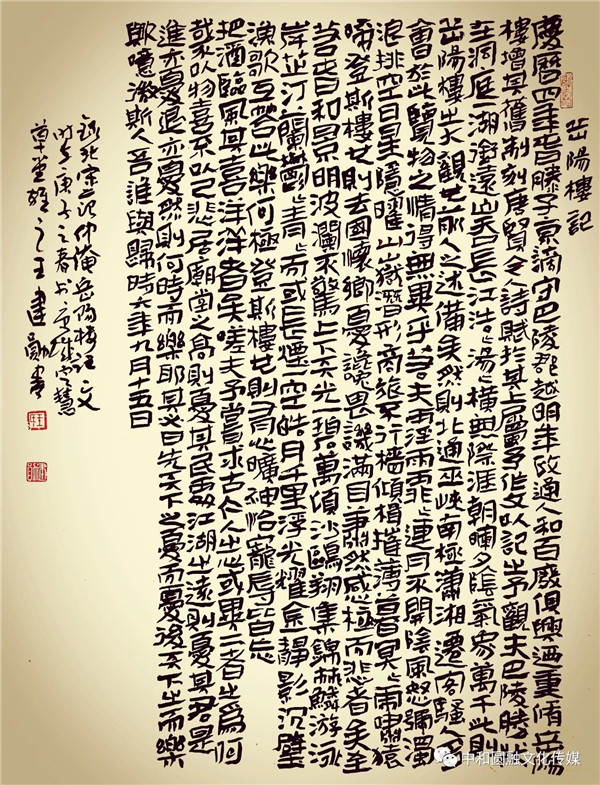 岳陽樓記
慶曆四年春滕子京謫守巴陵郡越明年政通人和百廢俱興迺重脩岳陽
樓增其舊制刻唐賢今人詩賦於其上屬予作文以記之予觀夫巴陵勝狀
在洞庭一湖銜遠山吞長江浩〻湯〻橫無際涯朝暉夕陰氣象萬千此則
岳陽樓之大觀也前人之述備矣然則北通巫峽南極瀟湘遷客騷人多
會於此覽物之情得無異乎若夫霪雨霏〻連月不開陰風怒號濁
浪排空日星隱曜山嶽潛形商旅不行檣傾楫摧薄暮冥〻虎嘯猿
啼登斯樓也則去國懷鄉憂讒畏譏滿目蕭然感極而悲者矣至
若春和景明波瀾不驚上下天光一碧萬頃沙鷗翔集錦鱗游泳
岸芷汀蘭鬱〻青〻而或長煙一空皓月千里浮光耀金靜影沉璧
漁歌互答此樂何極登斯樓也則有心曠神怡寵辱皆忘
把酒臨風其喜洋洋者矣嗟夫予嘗求古仁人之心或異二者之為何
哉不以物喜不以己悲居廟堂之高則憂其民處江湖之遠則憂其君是
進亦憂退亦憂然則何時而樂耶其必曰先天下之憂而憂後天下之而樂
歟噫微斯人吾誰與歸時六年九月十五日
錄北宋范仲淹岳陽樓記文
時在庚子之春於京空慧
草堂雄之王建勛書
中和圆融文化传媒